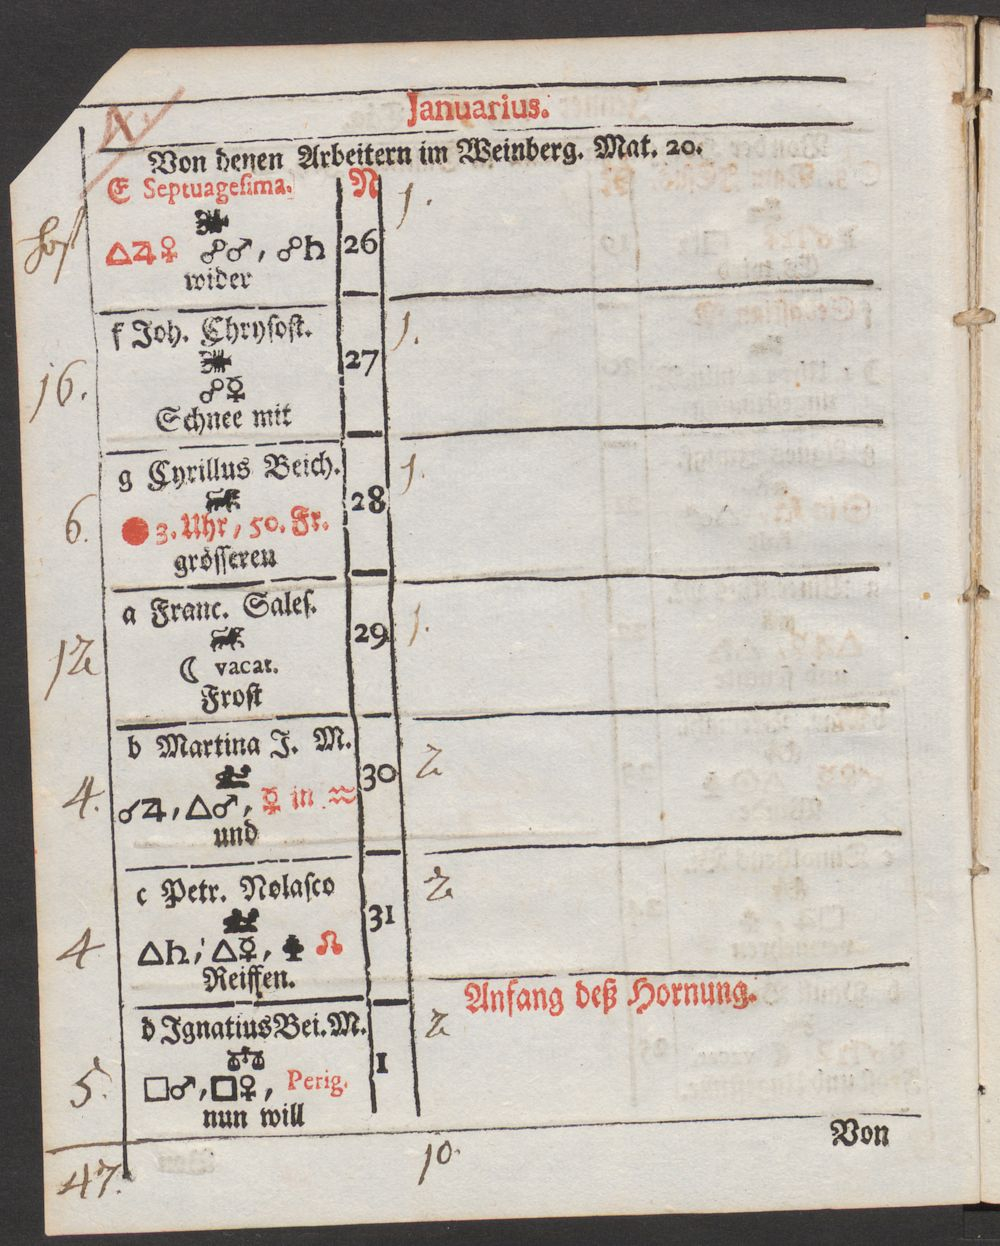 Januarius.
Von denen Arbeitern im Weinberg. Mat. 20.
E Septuagesima. N
1.
△♃♀ ☍♂, ☍♄ 26
wider
f Joh. Chrysost.
1.
16. 27
☍☿
Schnee mit
g Cyrillus Beich.
1.
28
6. ● 3. Uhr, 50. Fr.
grösseren
a Franc. Sales.
29 1.
12 ☾ vacat.
Frost
b Martina J. M.
30 2
4. ☌♃, △♂, ☿ in ♒
und
c Petr. Nolasco
2
31
4 △♄, △☿, ♣ ☊
Reissen.
Anfang deß Hornung.
d Ignatius Bei. M.
2
1
5. □♂, □♀, Perig.
nun will
Von
47. 10.